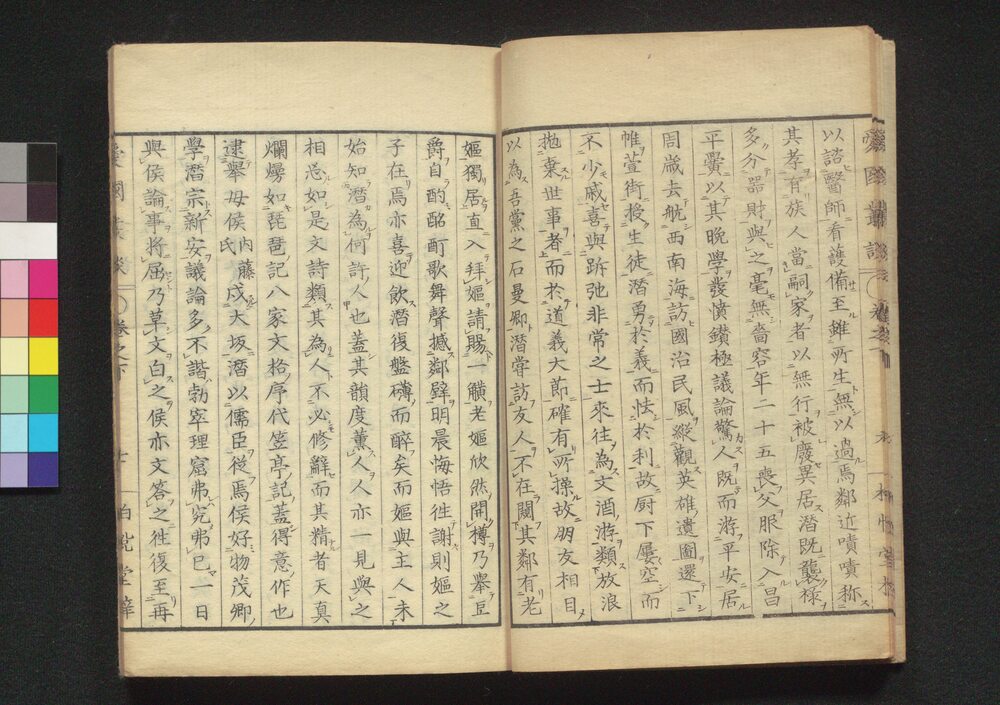 以諮醫師看護備至雖所生無以過焉鄰近嘖嘖称
其孝有族人當嗣家者以無行被廢異居潛既襲祿
多分器財與之毫無嗇容年二十五喪父服除入昌
平黌以其晚學發憤鑽極議論驚人既而游平安居
周歲去航西南海訪國治民風縱觀英雄遺圖還下
帷萱街授生徒潛勇於義而怯於利故厨下屢空而
不少戚喜與跅弛非常之士來往為文酒游類放浪
拋棄世事者而於道義大節確有所操故朋友相目
以為吾黨之石曼卿潛嘗訪友人不在闞其鄰有老
嫗獨居直入拜嫗請賜一觥老嫗欣然開樽乃舉豆
爵自酌酩酊歌舞聲撼鄰壁明晨悔悟徃謝則嫗之
子在焉亦喜迎飲潛復盤礴而醉矣而嫗與主人未
始知潛為何許人也蓋其韻度薰人人亦一見與之
相忘如是文詩類其為人不必修辭而其精者天真
爛熳如琵琶記八家文格序代笠亭記蓋得意作也
逮舉母侯內藤氏戍大坂潛以儒臣從焉侯好物茂卿
學潛宗新安議論多不諧勃窣理窟弗究弗已一日
與侯論事將屈乃草文白之侯亦文答之徃復至再
卷之下